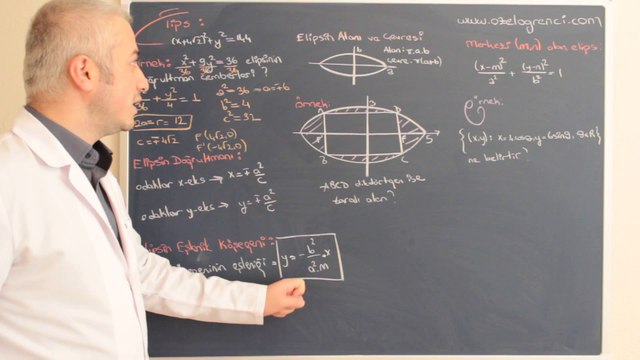 elips :
(x+4√2)²+y²=144
Örnek: x²+9y²=36 elipsinin
36 36 36
doğrultman çemberleri?
x²/36 + y²/4 = 1
a²=36 → a=∓6
b²=4
c²=32
2a=r=12
c=∓4√2
F(4√2,0)
F'(-4√2,0)
Elipsin Doğrultmanı:
odaklar x-eks → x=∓a²/c
odaklar y-eks → y=∓a²/c
Elipsin Eşlenik Köşegeni:
eşleniği = y=-b²/(a².m) .x
Elipsin Alanı ve Çevresi
Alan: π.a.b
Çevre: π(a+b)
b
a
örnek:
3
A
D
F
5
B
C
ABCD dikdörtgen ise
taralı alan?
www.ozelogrenci.com
Merkezi (m,n) olan elips.
(x-m)²/a² + (y-n)²/b² = 1
Örnek:
{(x,y): x=4cosθ, y=6sinθ, θ∈R}
ne belirtir?